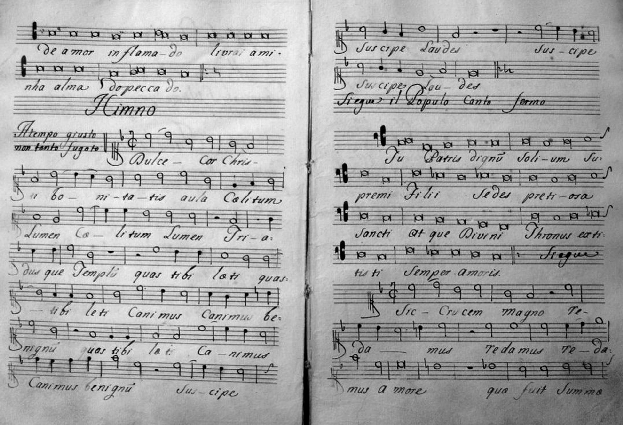 de amor inflama-do livrai ami-
nha alma do pecca do.
Himno
A tempo giusto
non tanto fugato
Dulce- Cor Chris-
ti bo- ni-ta-tis aula Calitum
Lumen Ca-litum Lumen Tri-a-
dus que Templũ quas tibi læti quas-
tibi leti Canimus Canimus be-
nignũ quas tibi læti Ca-nimus
Canimus benignũ Sus-cipe
Suscipe Laudes Sus-cipe
Suscipe Lau-des
Siegue il Populo Canto fermo
Tu Patris dignũ Soli-um Su-
premi Filii Sedes preti-osa
Sancti at que Divini Thronus exti-
tisti Semper amoris. Siegue
Sic- Crucem magno Re-
da mus redamus re-da-
mus a more qua fuit Summa